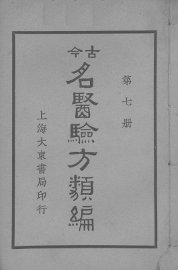 古今
名醫驗方類編
第七册
上海大東書局印行